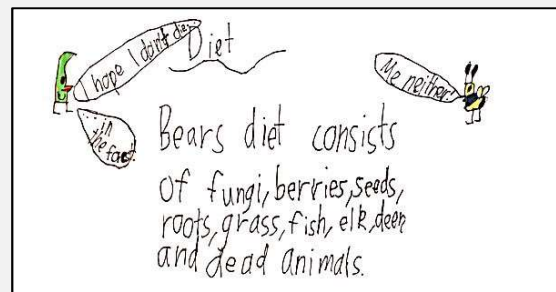 I hope I don't die...
Diet
Me neither!
...in
the
Bears diet consists
of fungi, berries, seeds,
roots, grass, fish, elk, deer
and dead animals.